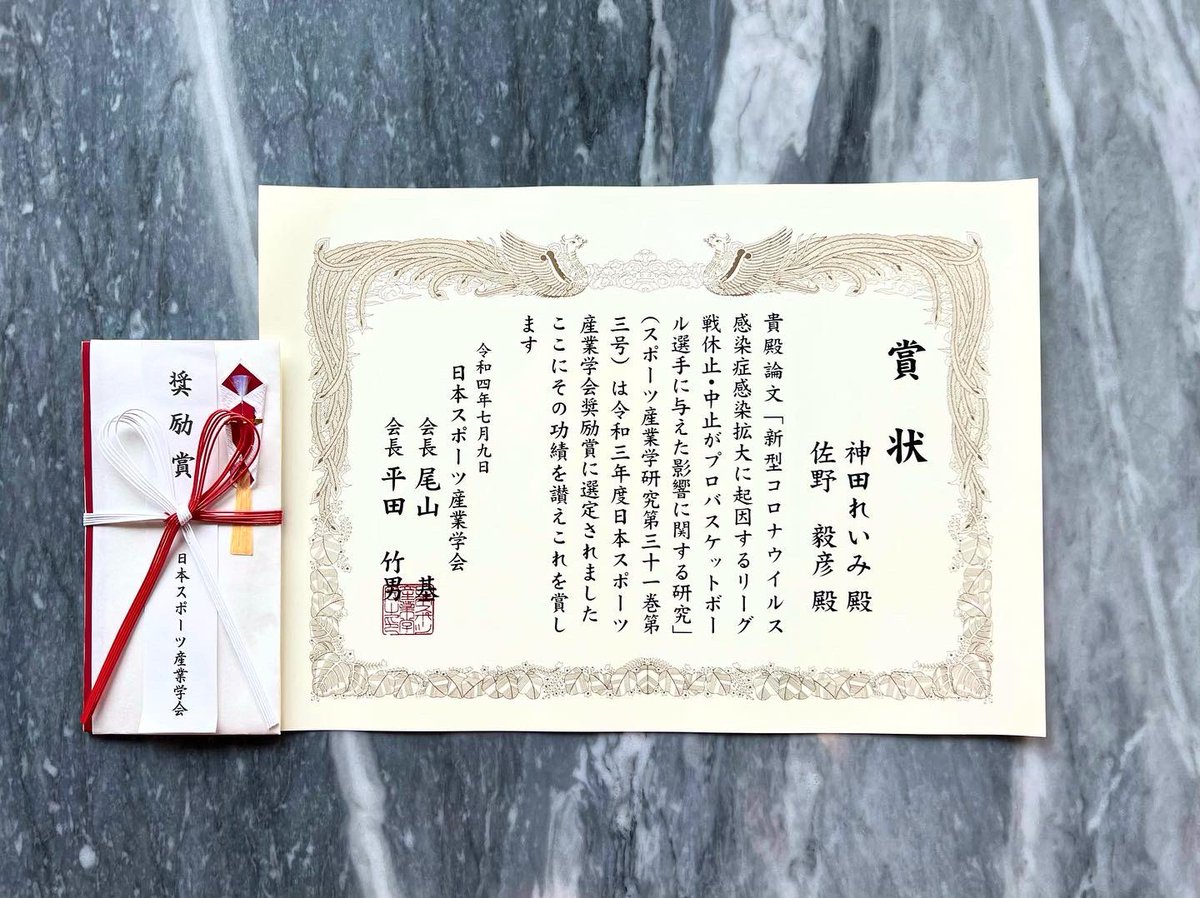 賞状
神田れいみ 殿
佐野 毅彦 殿
貴殿論文「新型コロナウイルス
感染症感染拡大に起因するリーグ
戦休止・中止がプロバスケットボー
ル選手に与えた影響に関する研究」
（スポーツ産業学研究第三十一巻第
三号）は令和三年度日本スポーツ
産業学会奨励賞に選定されました
ここにその功績を讃えこれを賞し
ます
令和四年七月九日
日本スポーツ産業学会
会長 尾山 基
会長 平田 竹男
奨励賞
日本スポーツ産業学会